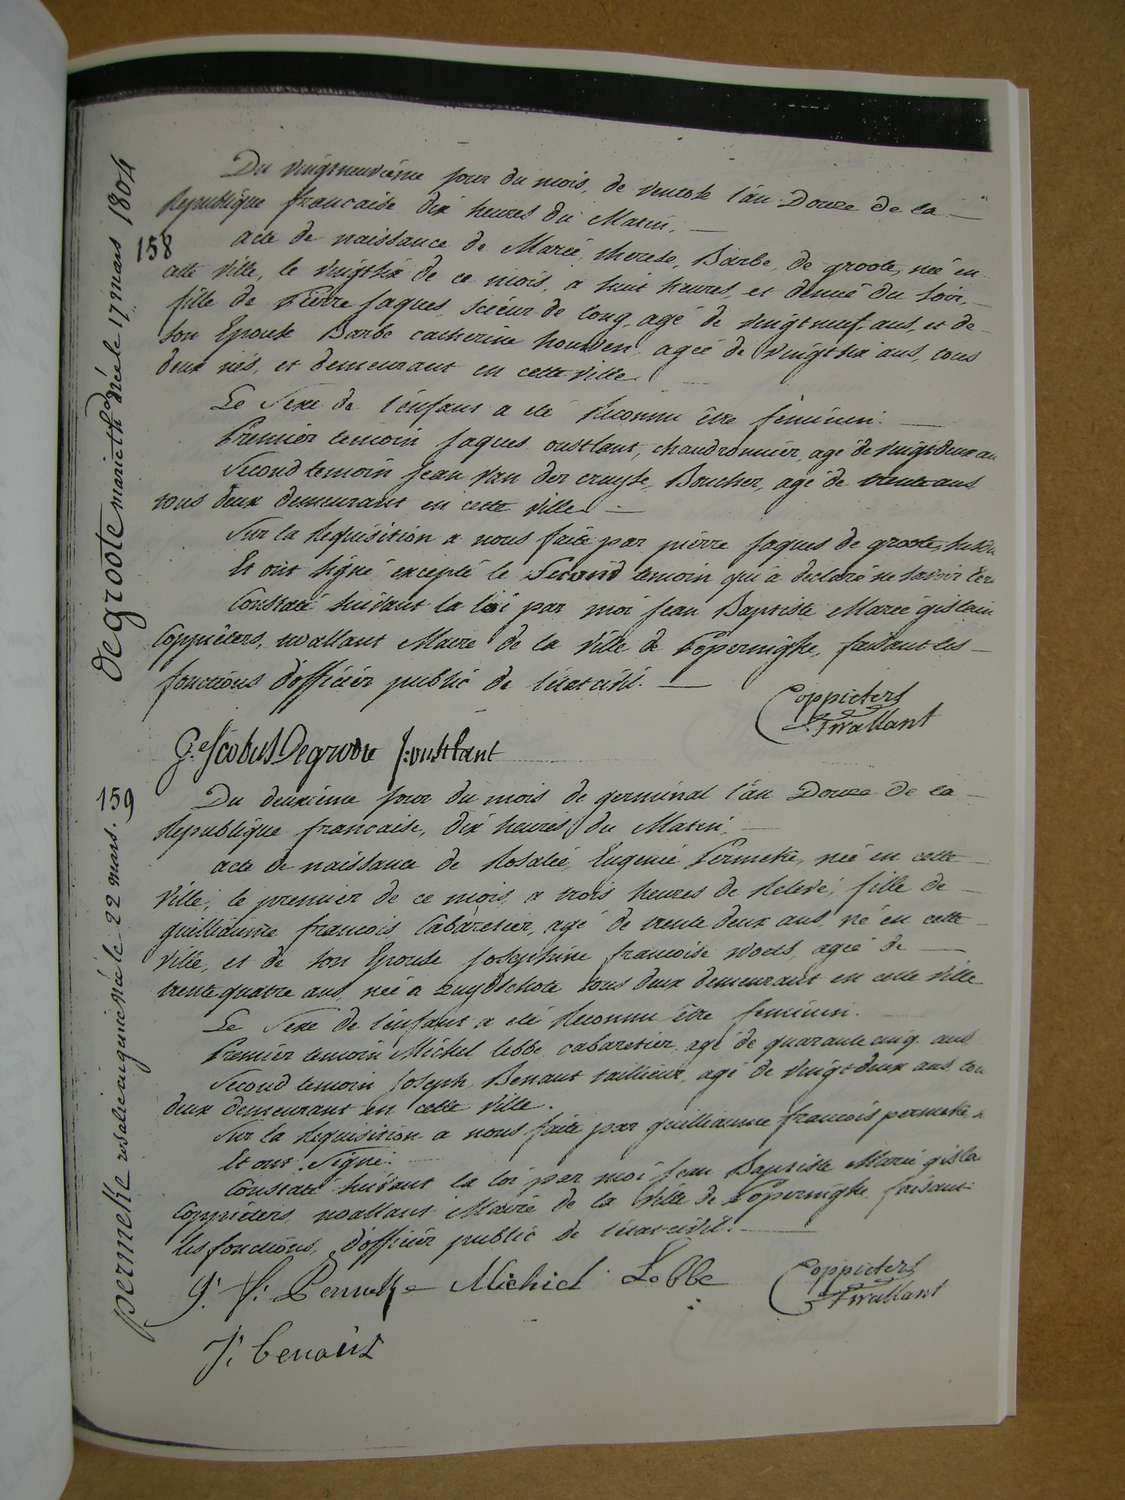 Du vingtneuvième jour du mois, de ventose l'an Douze de la
Republique francaise dix heures du Matin.
158
acte de naissance de Marie, therese, Barbe, de groote, née en
cette ville, le vingtsix de ce mois, a huit heures, et demie du soir,
fille de Pierre Jaques, scieur de long, agé de vingtneuf ans, et de
son Epouse Barbe catherine houwen, agée de vingtsix ans, tous
deux nés, et demeurant en cette ville.
Le Sexe de l'enfant a eté reconnu être féminin.
Premier temoin Jaques oustlant, chaudronnier, agé de vingtdeux an
Second temoin Jean Van der cruyse, Boucher, agé de trente ans
tous deux demeurant en cette ville.
Sur la requisition a nous faite par pierre Jaques de groote,
Et ont signé excepté le Second temoin qui a declaré ne savoir
Constaté suivant la loi par moi Jean Baptiste Marie gislain
Coppieters, wallant Maire de la ville de Poperinghe, faisant les
fonctions d'officier public de l'état civil.
Coppieters
Twallant
P.e Jcobus Degroote J: oustlant
degroote marie th. née le 17 mars 1804
159
Du deuxième jour du mois de germinal l'an Douze de la
Republique francaise, dix heures du Matin.
acte de naissance de Rosalie, Eugenie Permeke, née en cette
ville, le premier de ce mois, a trois heures de relevé, fille de
guilliaume francois Cabaretier, agé de trente deux ans, né en cette
ville, et de son Epouse Josephine francoise woets, agée de
trente quatre ans, née a Ruysbschote tous deux demeurant en cette ville
Le Sexe de l'enfant a eté reconnu être feminin.
Premier temoin Michel lebbe cabaretier, agé de quarante cinq ans
Second temoin Joseph Benaut taillieur, agé de vingtdeux ans, tou
deux demeurant en cette ville.
Sur la requisition a nous faite par guilliaume francois permeke
Et ont Signé.
Constaté suivant la loi par moi Jean Baptiste Marie gisla
Coppieters, wallant Maire de la ville de Poperinghe, faisant
les fonctions, d'officier public de l'état civil.
g. f: Permeke Michiel Lebbe
Coppieters
Twallant
J: benaut
permeke rosalie eugenie née le 22 mars.